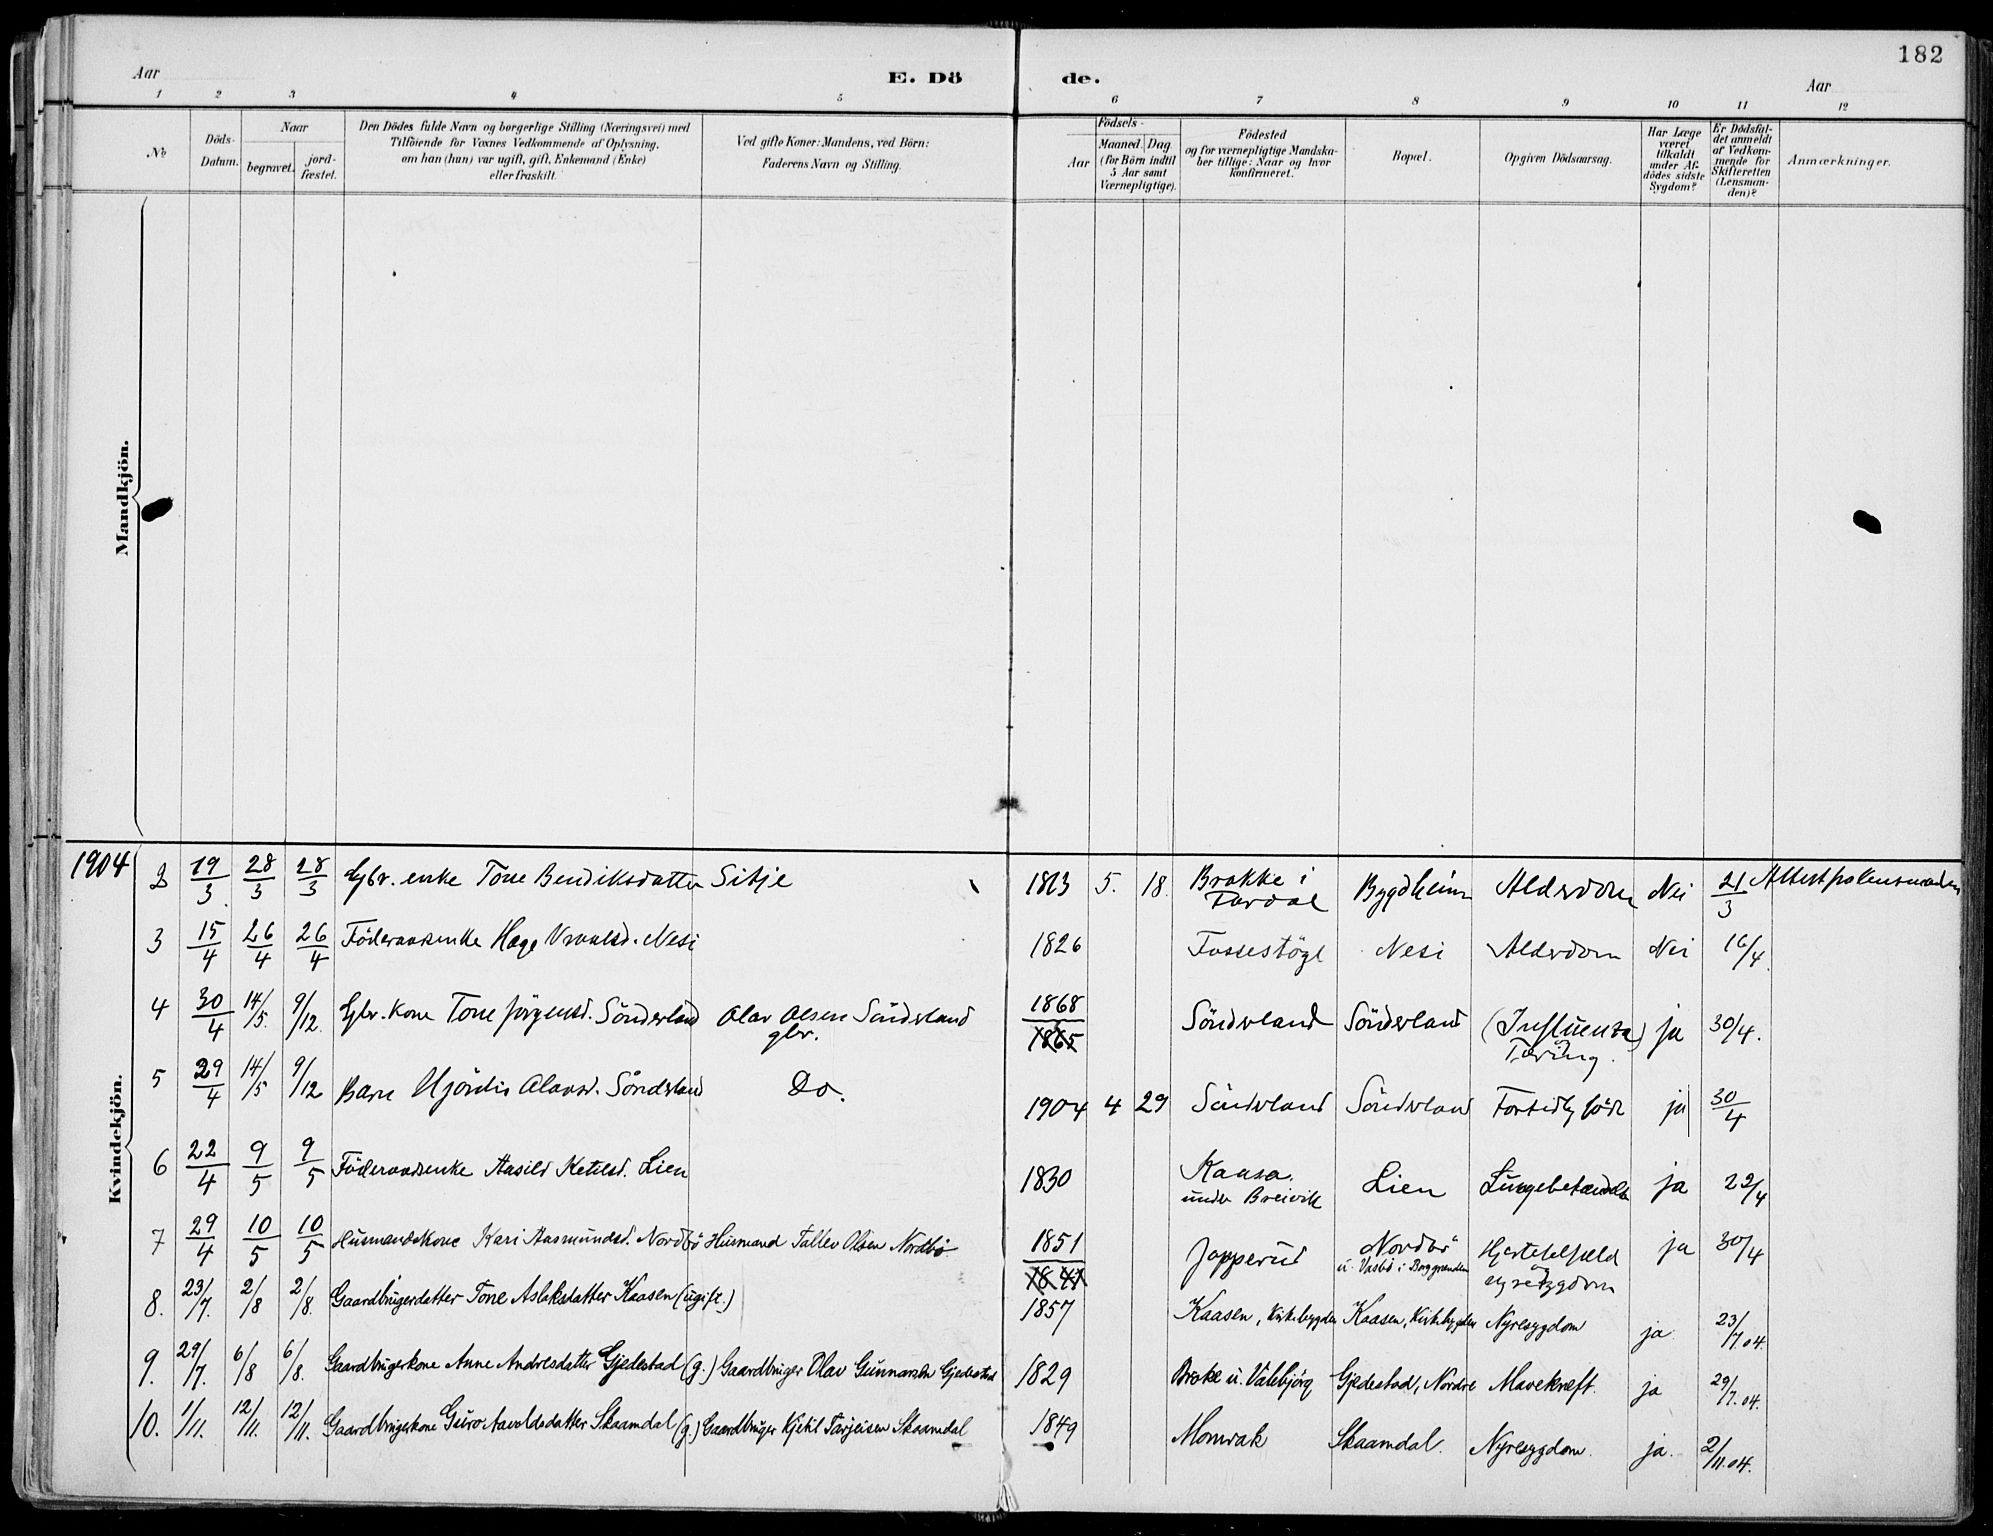 182
Aar
E. Dö
de.
Aar
1 2 3 4 5 6 7 8 9 10 11 12
No
Döds-
Datum.
Naar
begravet.
jord-
fæstet.
Den Dödes fulde Navn og borgerlige Stilling (Næringsvei) med
Tilföiende for Voxnes Vedkommende af Oplysning,
om han (hun) var ugift, gift, Enkemand (Enke)
eller fraskilt.
Ved gifte Koner: Mandens, ved Börn:
Faderens Navn og Stilling.
Födsels-
Aar
Maaned. Dag
(for Börn indtil
5 Aar samt
Værnepligtige).
Födested
og for værnepligtige Mandska-
ber tillige: Naar og hvor
konfirmeret.
Bopæl.
Opgiven Dödsaarsag.
Har Læge
været
tilkaldt
under Af-
dödes sidste
Sygdom?
Er Dödsfal-
det anmeldt
af Vedkom-
mende for
Skifteretten
(Lensman-
den)?
Anmærkninger.
Mandkjön.
Kvindekjön.
1904
2 19/3 28/3 28/3 Gbr. enke Tone Bendiksdatter Sitje 1813 5. 18. Brokke i Bygdheim Alderdom Nei 21/3
3 15/4 26/4 26/4 Föderaadsenke Hæge Vraalsd. Nesi 1826 Fossestögl Nesi Alderdom Nei 16/4.
4 30/4 14/5. 9/12. Gbr. kone Tone Jörgensd. Sönderland Olav Olsen Sönderland gbr. 1868 1865 Sönderland Sönderland (Influensa) Tæring. ja 30/4.
5 29/4 14/5 9/12 Barn Hjördis Olavsd. Sönderland Do. 1904 4 29 Sönderland Sönderland Fortidlig född ja 30/4
6 22/4 9/5 9/5 Föderaadsenke Aasild Ketilsd. Lien 1830 Kaasa under Breivik Lien Lungebetændelse ja 22/4
7 29/4 10/5 10/5 Husmandskone Kari Aasmundsd. Nordbö Husmand Tallev Olsen Nordbö 1851 1841 Jopperud Nordbö u. Vasbö i Hjertefeil ja 30/4
8. 23/7. 2/8 2/8. Gaardbrugerdatter Tone Aslaksdatter Kaasen (ugift.) 1857 Kaasen, Kirkebygden Kaasen, Kirkebygden Nyresygdom ja. 23/7.04.
9. 29/7. 6/8 6/8. Gaardbrugerkone Anne Andresdatter Gjedestad (g.) Gaardbruger Olav Gunnarsen Gjedestad 1829 Broke u. Valebjörg Gjedestad, Nordre Mavekræft. ja 29/7.04.
10. 1/11. 12/11. 12/11. Gaardbrugerkone Guro Aavoldsdatter Skaamdal (g.) Gaardbruger Kjetil Tarjeisen Skaamdal 1849 Momrak Skaamdal. Nyresygdom. ja. 2/11.04.